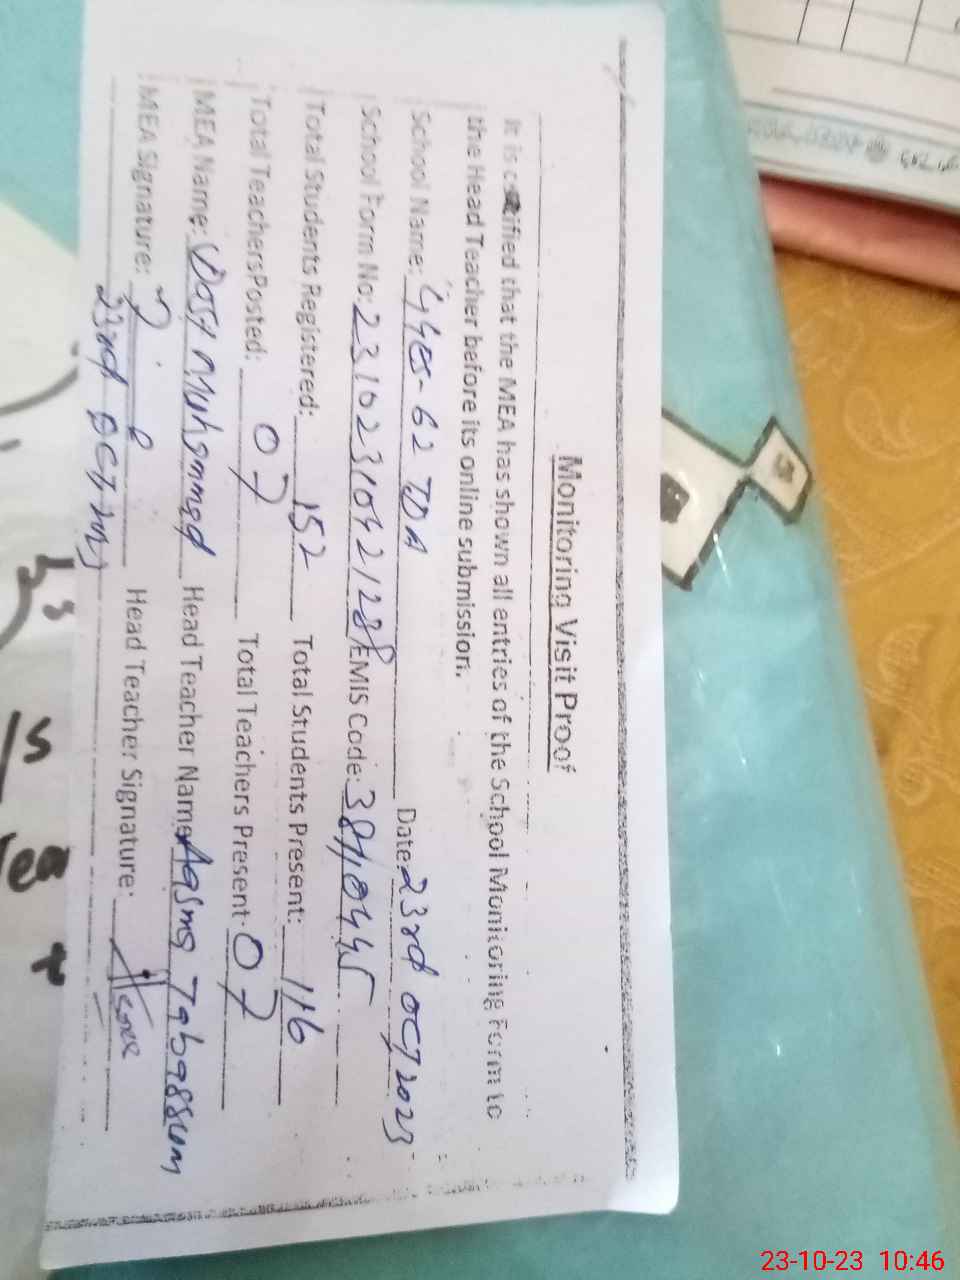 Monitoring Visit Proof
It is certified that the MEA has shown all entries of the School Monitoring Form to
the Head Teacher before its online submission.
School Name: GGES-62 TDA Date: 23rd OCT 2023
School Form No: 2310231042128 EMIS Code: 38110445
Total Students Registered: 152 Total Students Present: 116
Total TeachersPosted: 07 Total Teachers Present: 07
MEA Name: Dost Muhammad Head Teacher Name Aasma Tabassum
MEA Signature: Head Teacher Signature:
23rd OCT 2023
23-10-23 10:46